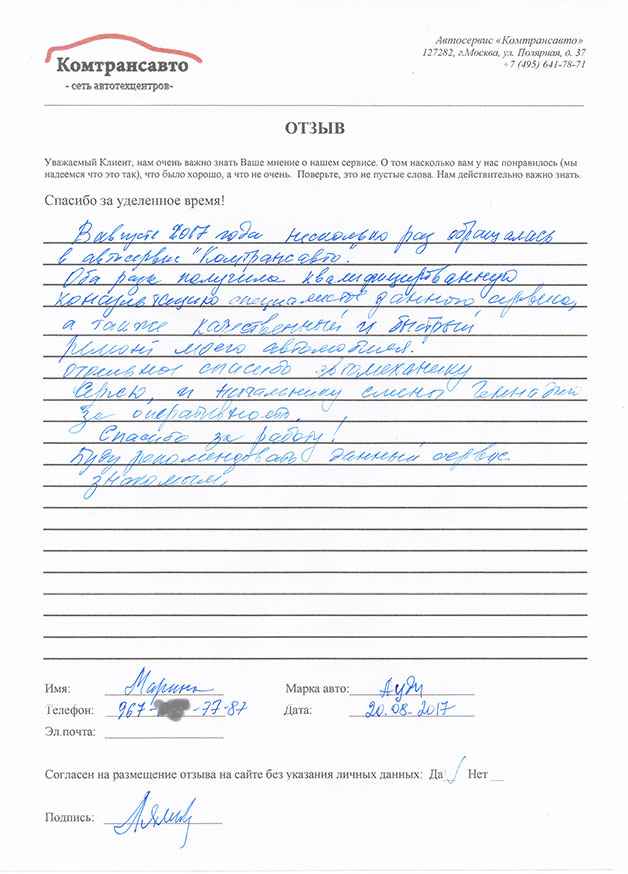 Комтрансавто
- сеть автотехцентров-
Автосервис «Комтрансавто»
127282, г.Москва, ул. Полярная, д. 37
+7 (495) 641-78-71
ОТЗЫВ
Уважаемый Клиент, нам очень важно знать Ваше мнение о нашем сервисе. О том насколько вам у нас понравилось (мы
надеемся что это так), что было хорошо, а что не очень. Поверьте, это не пустые слова. Нам действительно важно знать.
Спасибо за уделенное время!
В августе 2017 года несколько раз обращалась
в автосервис "Комтрансавто".
Оба раза получила квалифицированную
консультацию специалистов данного сервиса,
а также качественный и быстрый
ремонт моего автомобиля.
Отдельное спасибо автомеханику
Сергею, и начальнику смены Геннадию
за оперативность.
Спасибо за работу!
Буду рекомендовать данный сервис
знакомым.
Имя: Марина
Марка авто: Ауди
Телефон: 967- -77-87
Дата: 20.08.2017
Эл.почта:
Согласен на размещение отзыва на сайте без указания личных данных: Да √ Нет
Подпись: